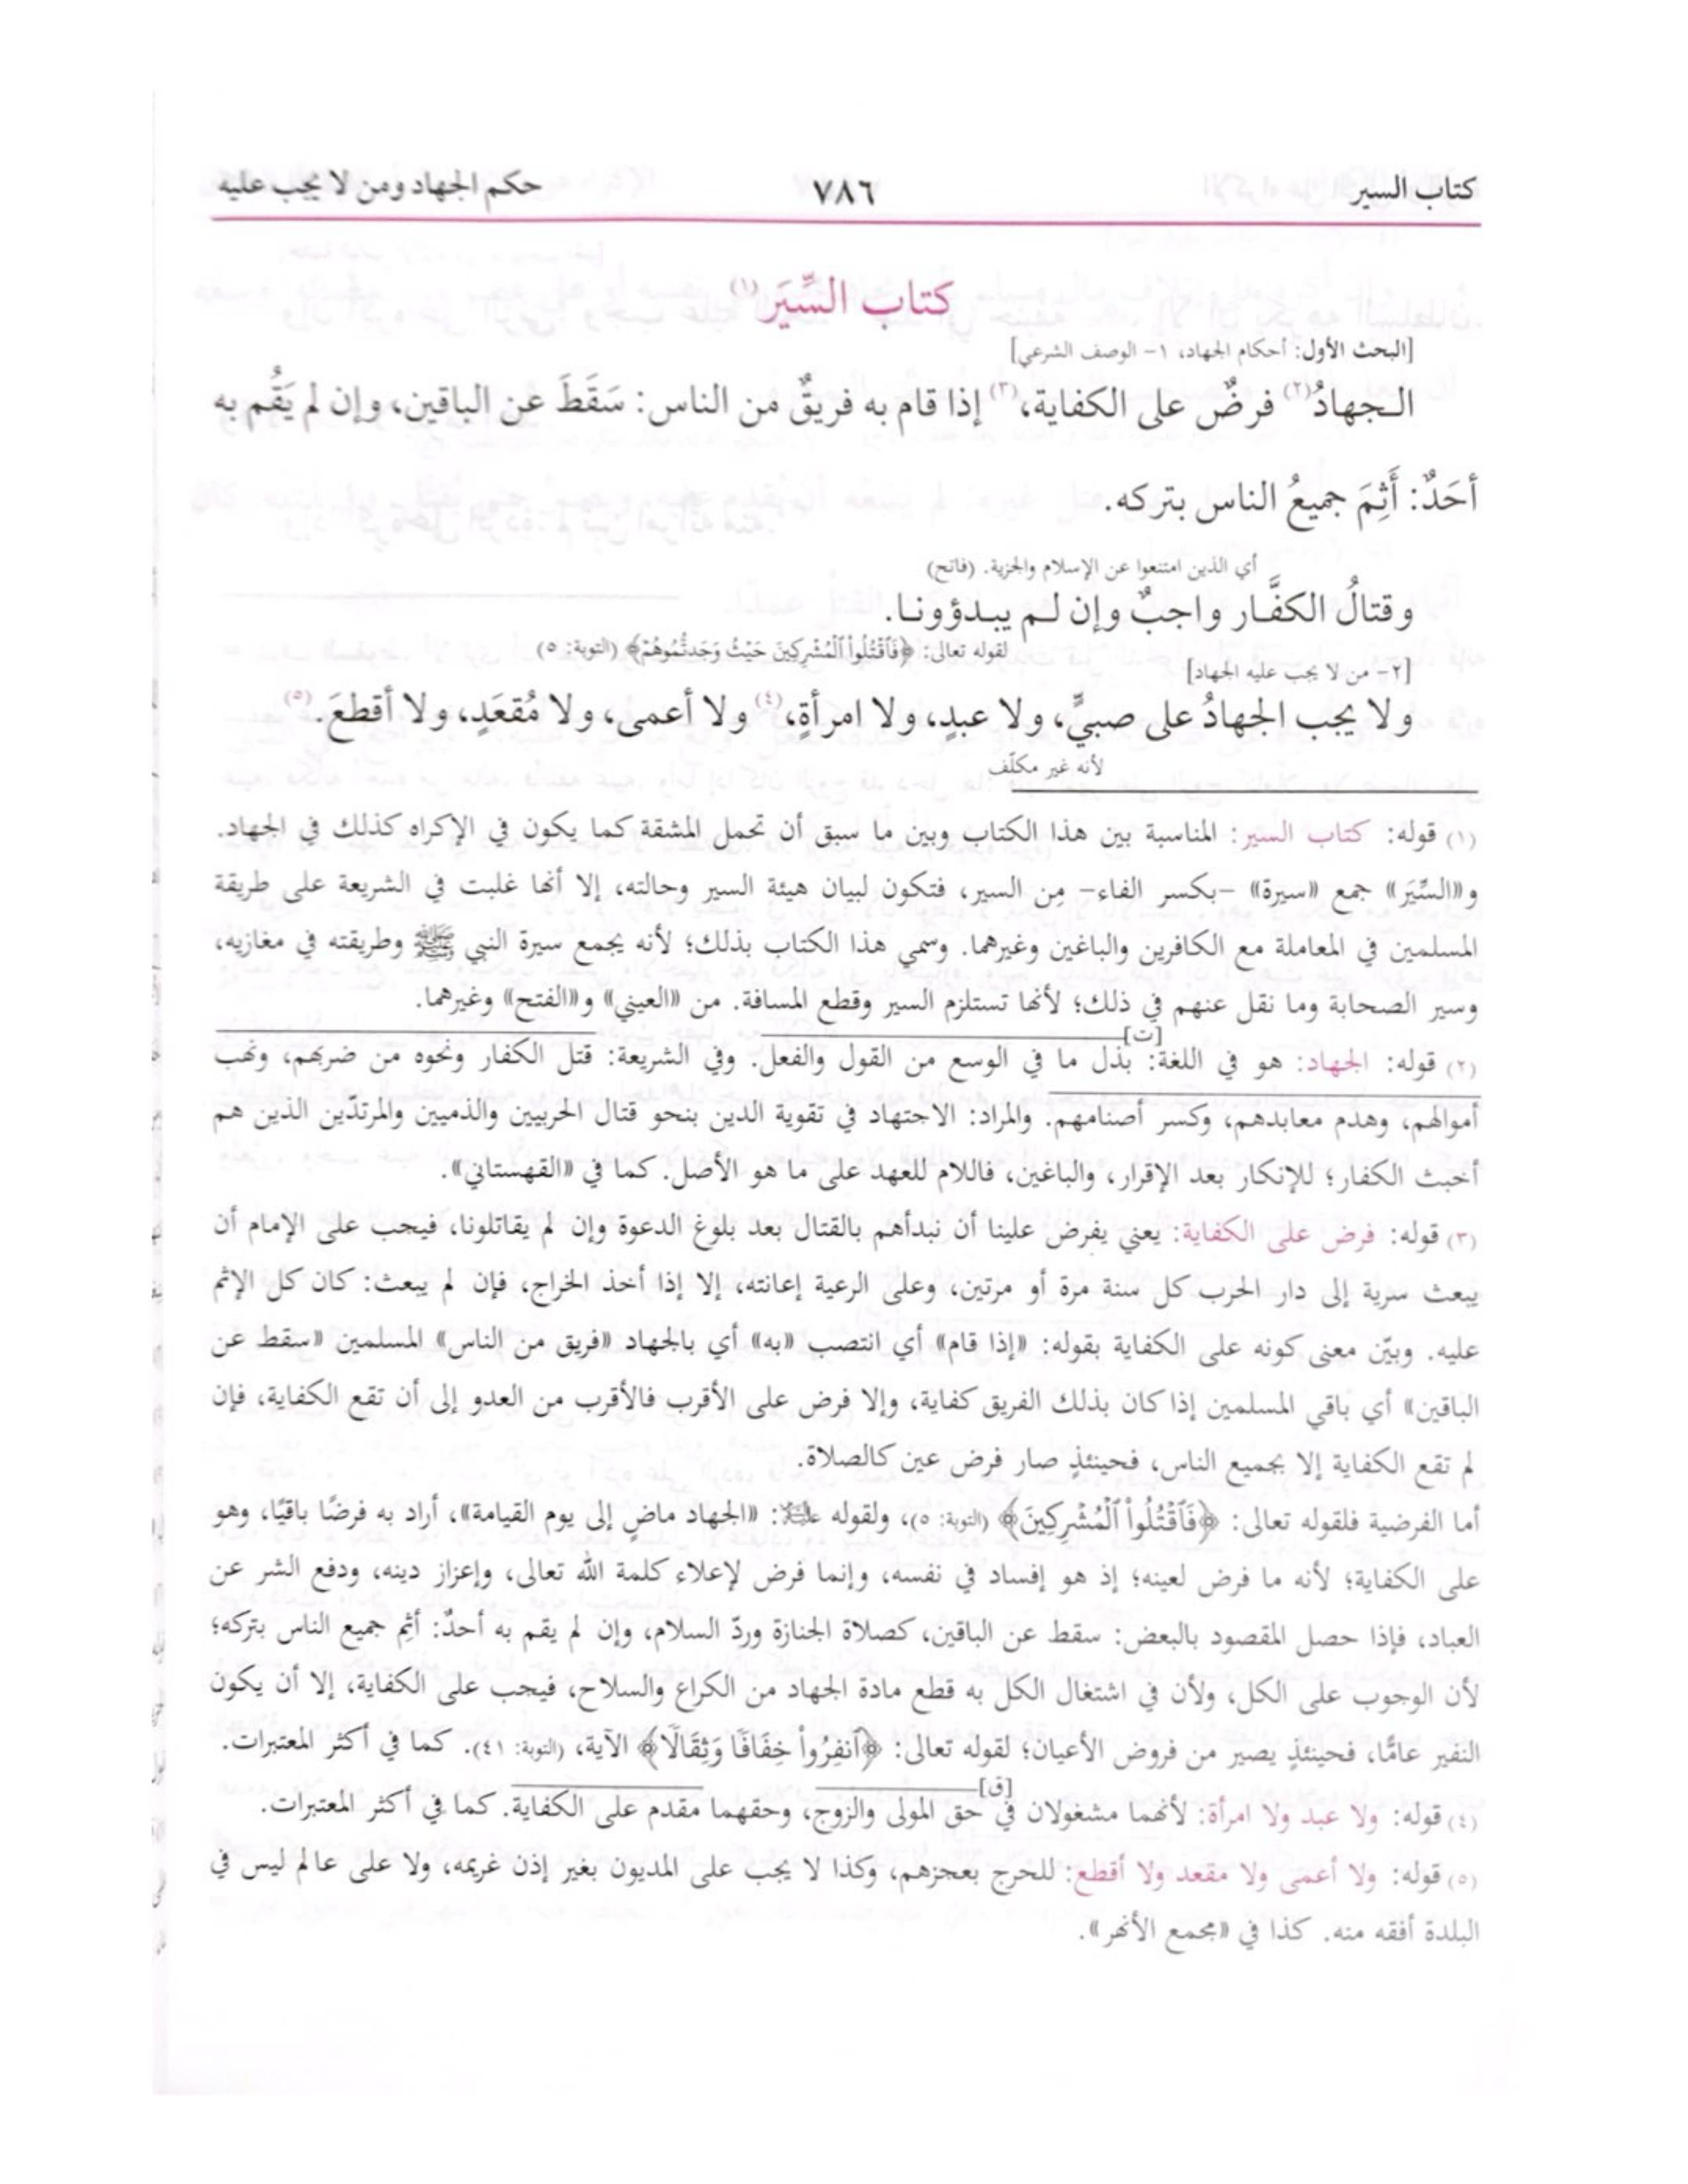 كتاب السير ٧٨٦ حكم الجهاد ومن لا يجب عليه
كتاب السِّيَر(١)
[البحث الأول: أحكام الجهاد، ١- الوصف الشرعي]
الـجهادُ(٢) فرضٌ على الكفاية،(٣) إذا قام به فريقٌ من الناس: سَقَطَ عن الباقين، وإن لم يَقُم به
أحَدٌ: أَثِمَ جميعُ الناس بتركه.
أي الذين امتنعوا عن الإسلام والجزية. (فاتح)
وقتالُ الكفَّار واجبٌ وإن لـم يبـدؤونـا.
لقوله تعالى: ﴿فَٱقْتُلُوا۟ ٱلْمُشْرِكِينَ حَيْثُ وَجَدتُّمُوهُمْ﴾ (التوبة: ٥)
[٢- من لا يجب عليه الجهاد]
ولا يجب الجهادُ على صبيٍّ، ولا عبدٍ، ولا امرأةٍ،(٤) ولا أعمى، ولا مُقعَدٍ، ولا أقطعَ.(٥)
لأنه غير مكلّف
(١) قوله: كتاب السير: المناسبة بين هذا الكتاب وبين ما سبق أن تحمل المشقة كما يكون في الإكراه كذلك في الجهاد.
و«السِّيَر» جمع «سيرة» -بكسر الفاء- مِن السير، فتكون لبيان هيئة السير وحالته، إلا أنها غلبت في الشريعة على طريقة
المسلمين في المعاملة مع الكافرين والباغين وغيرهما. وسمي هذا الكتاب بذلك؛ لأنه يجمع سيرة النبي ﷺ وطريقته في مغازيه،
وسير الصحابة وما نقل عنهم في ذلك؛ لأنها تستلزم السير وقطع المسافة. من «العيني» و«الفتح» وغيرهما.
[ت]
(٢) قوله: الجهاد: هو في اللغة: بذل ما في الوسع من القول والفعل. وفي الشريعة: قتل الكفار ونحوه من ضربهم، ونهب
أموالهم، وهدم معابدهم، وكسر أصنامهم. والمراد: الاجتهاد في تقوية الدين بنحو قتال الحربيين والذميين والمرتدّين الذين هم
أخبث الكفار؛ للإنكار بعد الإقرار، والباغين، فاللام للعهد على ما هو الأصل. كما في «القهستاني».
(٣) قوله: فرض على الكفاية: يعني يفرض علينا أن نبدأهم بالقتال بعد بلوغ الدعوة وإن لم يقاتلونا، فيجب على الإمام أن
يبعث سرية إلى دار الحرب كل سنة مرة أو مرتين، وعلى الرعية إعانته، إلا إذا أخذ الخراج، فإن لم يبعث: كان كل الإثم
عليه. وبيّن معنى كونه على الكفاية بقوله: «إذا قام» أي انتصب «به» أي بالجهاد «فريق من الناس» المسلمين «سقط عن
الباقين» أي باقي المسلمين إذا كان بذلك الفريق كفاية، وإلا فرض على الأقرب فالأقرب من العدو إلى أن تقع الكفاية، فإن
لم تقع الكفاية إلا بجميع الناس، فحينئذٍ صار فرض عين كالصلاة.
أما الفرضية فلقوله تعالى: ﴿فَٱقْتُلُوا۟ ٱلْمُشْرِكِينَ﴾ (التوبة: ٥)، ولقوله ﷺ: «الجهاد ماضٍ إلى يوم القيامة»، أراد به فرضًا باقيًا، وهو
على الكفاية؛ لأنه ما فرض لعينه؛ إذ هو إفساد في نفسه، وإنما فرض لإعلاء كلمة الله تعالى، وإعزاز دينه، ودفع الشر عن
العباد، فإذا حصل المقصود بالبعض: سقط عن الباقين، كصلاة الجنازة وردّ السلام، وإن لم يقم به أحدٌ: أثِم جميع الناس بتركه؛
لأن الوجوب على الكل، ولأن في اشتغال الكل به قطع مادة الجهاد من الكراع والسلاح، فيجب على الكفاية، إلا أن يكون
النفير عامًّا، فحينئذٍ يصير من فروض الأعيان؛ لقوله تعالى: ﴿ٱنفِرُوا۟ خِفَافًا وَثِقَالًا﴾ الآية، (التوبة: ٤١). كما في أكثر المعتبرات.
[ق]
(٤) قوله: ولا عبد ولا امرأة: لأنهما مشغولان في حق المولى والزوج، وحقهما مقدم على الكفاية. كما في أكثر المعتبرات.
(٥) قوله: ولا أعمى ولا مقعد ولا أقطع: للحرج بعجزهم، وكذا لا يجب على المديون بغير إذن غريمه، ولا على عالم ليس في
البلدة أفقه منه. كذا في «مجمع الأنهر».